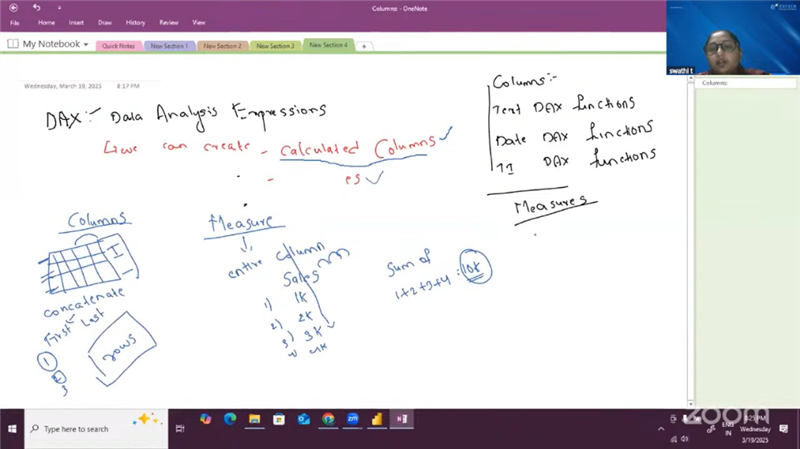 Columns - OneNote
File
Home
Insert
Draw
History
Review
View
Help
My Notebook
Quick Notes
New Section 1
New Section 2
New Section 3
New Section 4
+
Wednesday, March 19, 2025 8:17 PM
DAX:- Data Analysis Expressions
↳ we can create - Calculated Columns ✓
- es ✓
Columns:-
Text DAX functions
Date DAX functions
TI DAX functions
Measures
Columns
concatenate
First Last
1
2
3
rows
Measure
entire column
Sales
1) 1K
2) 2K
3) 3K
4) 4K
Sum of
1+2+3+4 = 10K
swathi t
Columns
Type here to search
ENG
IN
8:25 PM
Wednesday
3/19/2025
zoom